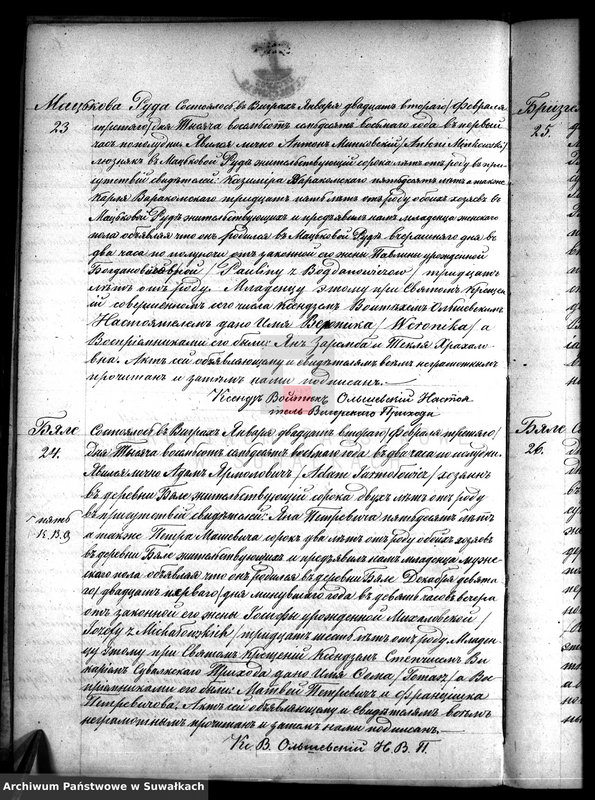 Мацькова Руда
23
Состоялось въ Виграхъ Января двадцать втораго /Февраля
третьяго/ дня Тысяча восемьсотъ семьдесятъ восьмаго года въ первый
часъ пополудни. Явился лично Антонъ Минковскій /Antoni Minkowski/
въ Мацьковой Рудѣ жительствующій сорока лѣтъ отъ роду въ при-
сутствіи свидѣтелей: Козиміра Варакомскаго пятьдесятъ лѣтъ а также
Карла Варакомскаго тридцать пять лѣтъ отъ роду обоихъ хозяевъ въ
Мацьковой Рудѣ жительствующихъ и предъявилъ намъ младенца женскаго
пола объявляя что онъ родился въ Мацьковой Рудѣ вчерашняго дня въ
два часа по полуночи отъ законной его жены Павлины урожденной
/Pauliny z Bogdanowiczów/ тридцать
лѣтъ отъ роду. Младенцу этому при Святомъ Крещен
іи совершенномъ сего числа Ксендзомъ Войтѣхомъ Ольшевскимъ
Настоятелемъ дано Имя Вероника /Weronika/ а
Воспріемниками его были: Янъ Заремба и Текля
Актъ сей объявляющему и свидѣтелямъ всѣмъ неграмотнымъ
прочитанъ и затѣмъ нами подписанъ.
Ксендзъ Войтѣхъ Ольшевскій Настоя
тель Вигерскаго Прихода
Бяле
24.
Состоялось въ Виграхъ Января двадцать втораго /Февраля третьяго/
дня Тысяча восемьсотъ семьдесятъ восьмаго года въ два часа по полудни.
Явился лично Адамъ Ярмоловичъ /Adam Jarmołowicz/ хозяинъ
въ деревни Бяле жительствующій сорока двухъ лѣтъ отъ роду
пять
К. В. О
въ присутствіи свидѣтелей: Яна Петревича пятьдесятъ лѣтъ
а также Петра Машевича сорокъ два лѣтъ отъ роду обоихъ хозяевъ
въ деревни Бяле жительствующихъ и предъявилъ намъ младенца муже-
скаго пола объявляя что онъ родился въ деревни Бяле Декабря девята-
го/ двадцать перваго/ дня минувшаго года въ девять часовъ вечера
отъ законной его жены Іозефы урожденной Михаловской /
Józefy z Michałowskich/ тридцать шесть лѣтъ отъ роду. Младен-
цу этому при Святомъ Крещеніи Ксендзомъ Ви
каріемъ Сувалкскаго Прихода дано Имя Ѳома /Tomasz/ а Во
спріемниками его были: Матвей Петревичъ и Францишка
Петревичова. Актъ сей объявляющему и свидѣтелямъ всѣмъ
неграмотнымъ прочитанъ и затѣмъ нами подписанъ.
Кс В. Ольшевскій Н. В. П.
25.
Бяле
26.
Archiwum Państwowe w Suwałkach